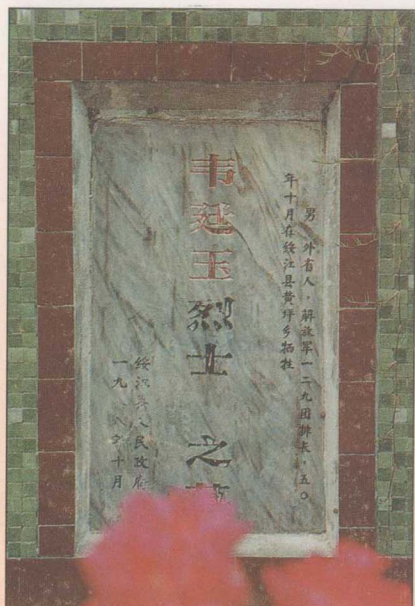 男，外省人，解放军一二九团排长，五〇
年十月在绥江县黄坪乡牺牲
韦廷玉烈士之墓
绥江县人民政府
一九八 年十月